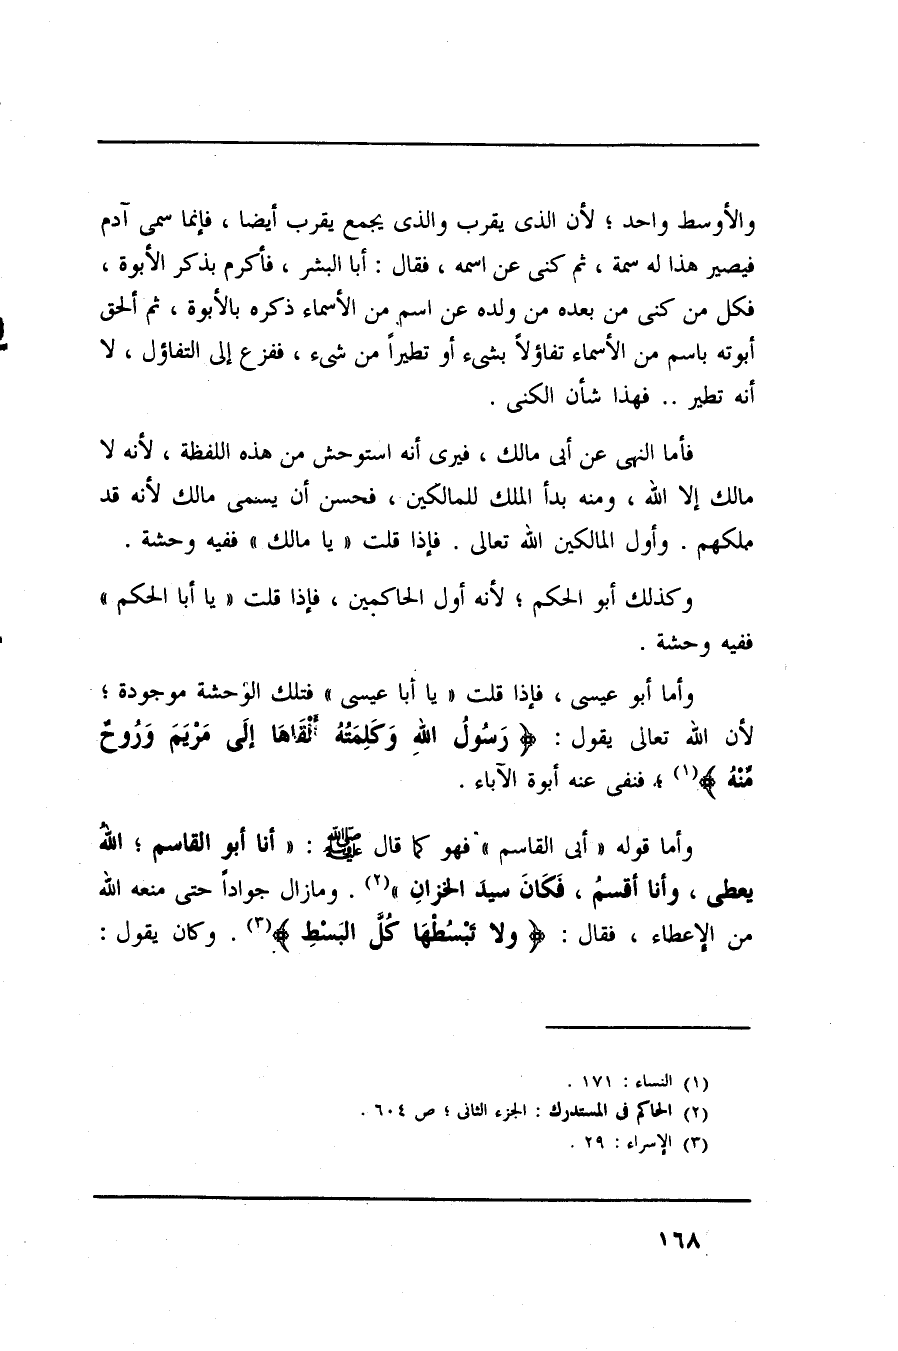 والأوسط واحد ؛ لأن الذى يقرب والذى يجمع يقرب أيضا ، فإنما سمى آدم
فيصير هذا له سمة ، ثم كنى عن اسمه ، فقال : أبا البشر ، فأكرم بذكر الأبوة ،
فكل من كنى من بعده من ولده عن اسم من الأسماء ذكره بالأبوة ، ثم ألحق
أبوته باسم من الأسماء تفاؤلاً بشىء أو تطيراً من شىء ، ففزع إلى التفاؤل ، لا
أنه تطير .. فهذا شأن الكنى .
فأما النهى عن أبى مالك ، فيرى أنه استوحش من هذه اللفظة ، لأنه لا
مالك إلا الله ، ومنه بدأ الملك للمالكين ، فحسن أن يسمى مالك لأنه قد
ملكهم . وأول المالكين الله تعالى . فإذا قلت « يا مالك » ففيه وحشة .
وكذلك أبو الحكم ؛ لأنه أول الحاكمين ، فإذا قلت « يا أبا الحكم »
ففيه وحشة .
وأما أبو عيسى ، فإذا قلت « يا أبا عيسى » فتلك الوحشة موجودة ؛
لأن الله تعالى يقول : ﴿ رَسُولُ اللهِ وَكَلِمَتُهُ أَلْقَاهَا إِلَى مَرْيَمَ وَرُوحٌ
مِّنْهُ ﴾(١) ؛ فنفى عنه أبوة الآباء .
وأما قوله « أبى القاسم » فهو كما قال ﷺ : « أنا أبو القاسم ؛ اللهُ
يعطى ، وأنا أقسمُ ، فَكَانَ سيدَ الخزانِ »(٢) . ومازال جواداً حتى منعه الله
من الإعطاء ، فقال : ﴿ ولا تَبْسُطْهَا كُلَّ البَسْطِ ﴾(٣) . وكان يقول :
(١) النساء : ١٧١ .
(٢) الحاكم فى المستدرك : الجزء الثانى ؛ ص ٦٠٤ .
(٣) الإسراء : ٢٩ .
١٦٨